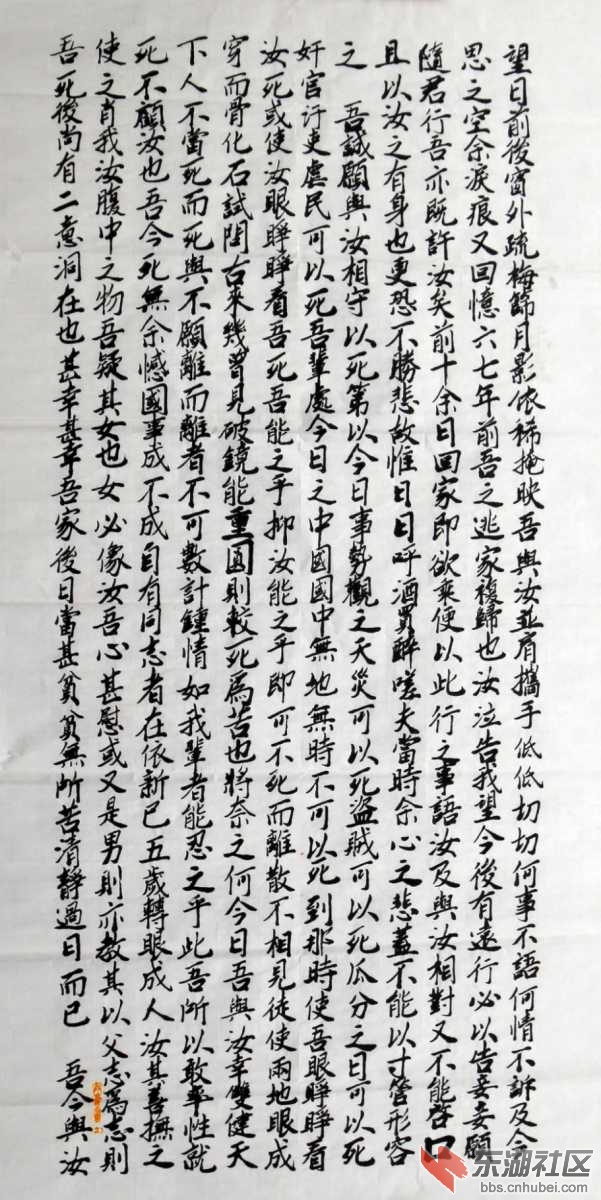 望日前後窗外疏梅篩月影依稀掩映吾與汝並肩攜手低低切切何事不語何情不訴及今
思之空余淚痕又回憶六七年前吾之逃家複歸也汝泣告我望今後有遠行必以告妾妾願
隨君行吾亦既許汝矣前十余日回家即欲乘便以此行之事語汝及與汝相對又不能啓口
且以汝之有身也更恐不勝悲故惟日日呼酒買醉嗟夫當時余心之悲蓋不能以寸管形容
之 吾誠願與汝相守以死第以今日事勢觀之天災可以死盜賊可以死瓜分之日可以死
奸官汙吏虐民可以死吾輩處今日之中國國中無地無時不可以死到那時使吾眼睜睜看
汝死或使汝眼睜睜看吾死吾能之乎抑汝能之乎即可不死而離散不相見徒使兩地眼成
穿而骨化石試問古來幾曾見破鏡能重圓則較死爲苦也將奈之何今日吾與汝幸雙健天
下人不當死而死與不願離而離者不可數計鍾情如我輩者能忍之乎此吾所以敢率性就
死不顧汝也吾今死無余憾國事成不成自有同志者在依新已五歲轉眼成人汝其善撫之
使之肖我汝腹中之物吾疑其女也女必像汝吾心甚慰或又是男則亦教其以父志爲志則
吾死後尚有二意洞在也甚幸甚幸吾家後日當甚貧貧無所苦清靜過日而已 吾今與汝
东湖社区
bbs.cnhubei.com